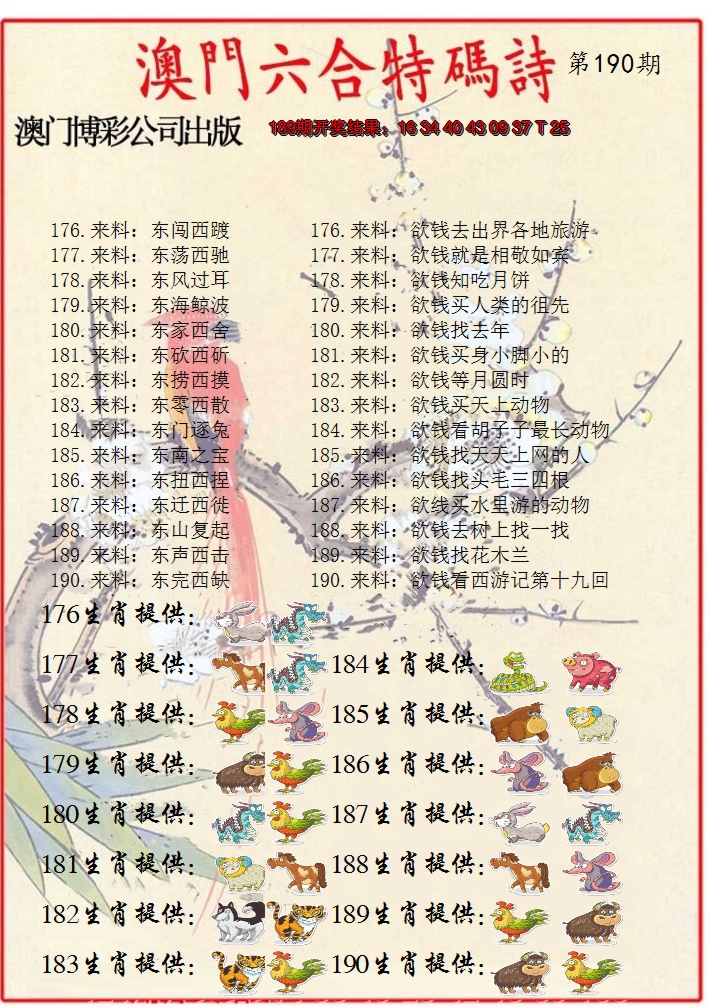 澳門六合特碼詩 第190期
澳门博彩公司出版 189期开奖结果：16 34 40 43 09 37 T 25
176.来料：东闯西踱 176.来料：欲钱去出界各地旅游
177.来料：东荡西驰 177.来料：欲钱就是相敬如宾
178.来料：东风过耳 178.来料：欲钱知吃月饼
179.来料：东海鲸波 179.来料：欲钱买人类的祖先
180.来料：东家西舍 180.来料：欲钱找去年
181.来料：东砍西斫 181.来料：欲钱买身小脚小的
182.来料：东捞西摸 182.来料：欲钱等月圆时
183.来料：东零西散 183.来料：欲钱买天上动物
184.来料：东门逐兔 184.来料：欲钱看胡子于最长动物
185.来料：东南之宝 185.来料：欲钱找天天上网的人
186.来料：东扭西捏 186.来料：欲钱找头毛三四根
187.来料：东迁西徙 187.来料：欲线买水里游的动物
188.来料：东山复起 188.来料：欲钱去树上找一找
189.来料：东声西击 189.来料：欲钱找花木兰
190.来料：东完西缺 190.来料：欲钱看西游记第十九回
176生肖提供：
177生肖提供： 184生肖提供：
178生肖提供： 185生肖提供：
179生肖提供： 186生肖提供：
180生肖提供： 187生肖提供：
181生肖提供： 188生肖提供：
182生肖提供： 189生肖提供：
183生肖提供： 190生肖提供：